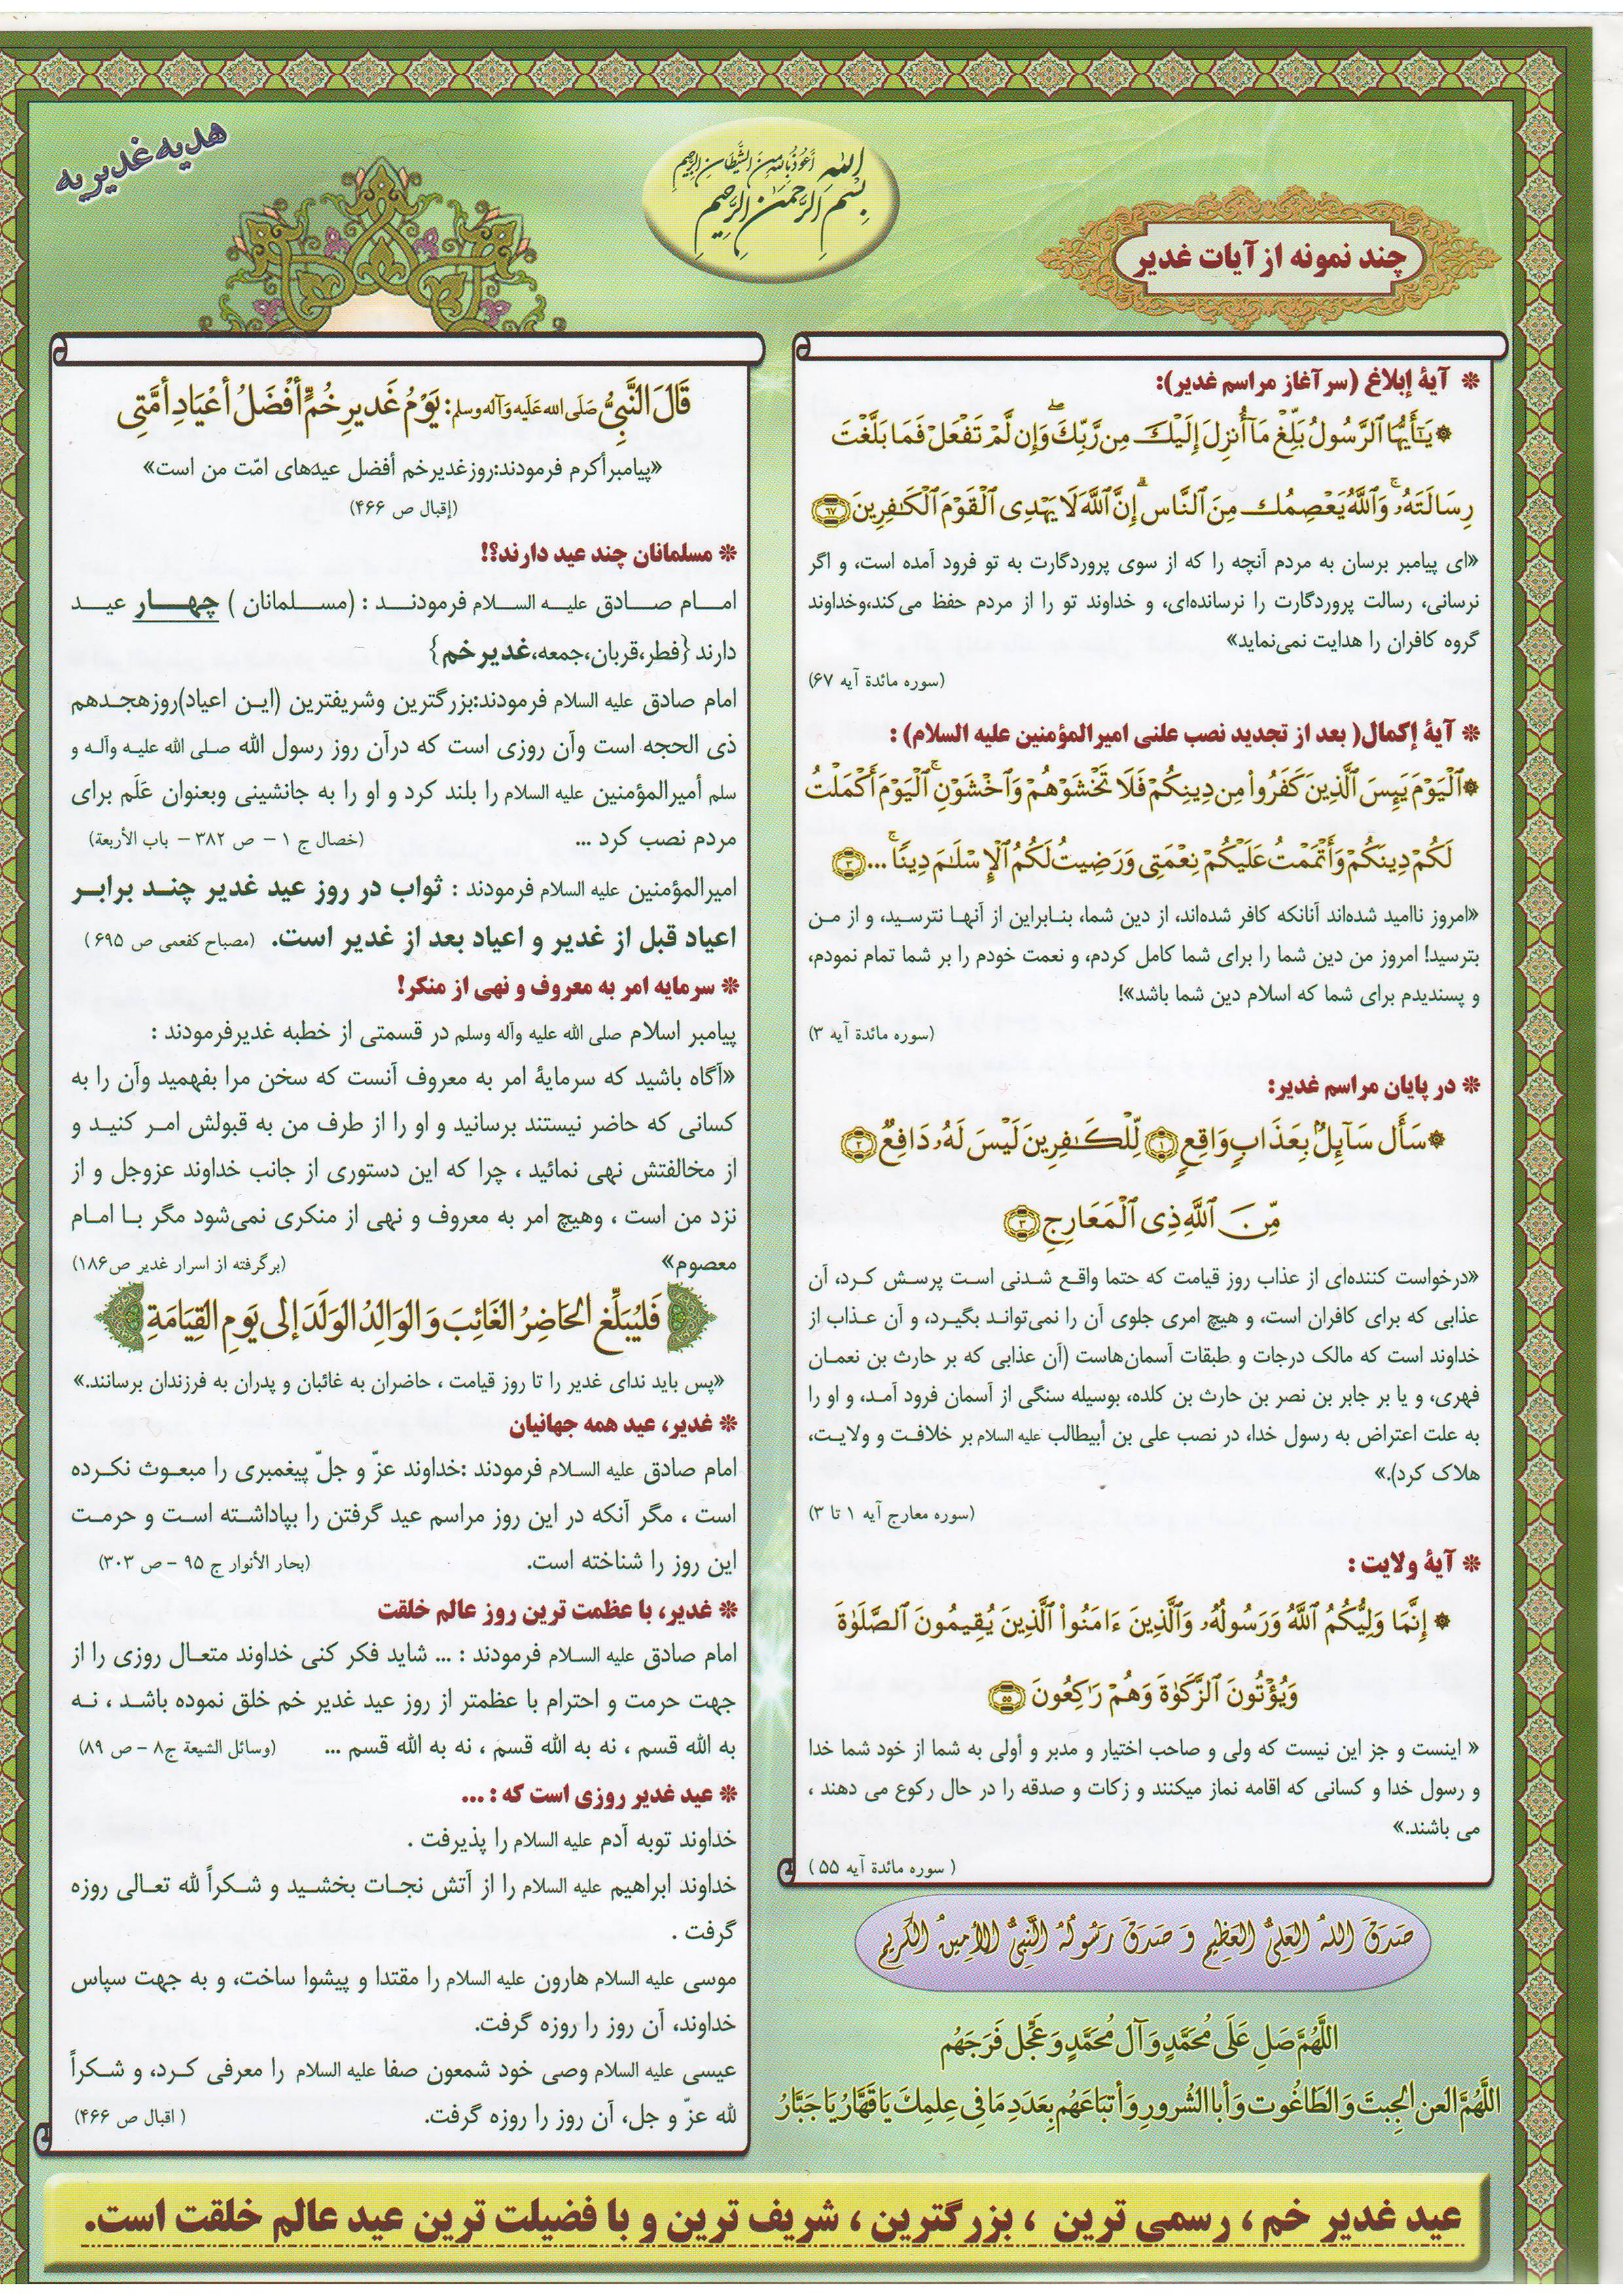 هدیه غدیریه
أعوذ بالله من الشیطان الرجیم
بسم الله الرحمن الرحیم
چند نمونه از آیات غدیر
* آیۀ إبلاغ (سرآغاز مراسم غدیر):
يَٰٓأَيُّهَا ٱلرَّسُولُ بَلِّغْ مَآ أُنزِلَ إِلَيْكَ مِن رَّبِّكَ ۖ وَإِن لَّمْ تَفْعَلْ فَمَا بَلَّغْتَ
رِسَالَتَهُۥ ۚ وَٱللَّهُ يَعْصِمُكَ مِنَ ٱلنَّاسِ ۗ إِنَّ ٱللَّهَ لَا يَهْدِى ٱلْقَوْمَ ٱلْكَٰفِرِينَ ٦٧
«ای پیامبر برسان به مردم آنچه را که از سوی پروردگارت به تو فرود آمده است، و اگر
نرسانی، رسالت پروردگارت را نرسانده‌ای، و خداوند تو را از مردم حفظ می‌کند،وخداوند
گروه کافران را هدایت نمی‌نماید»
(سوره مائدة آیه ۶۷)
* آیۀ إکمال( بعد از تجدید نصب علنی امیرالمؤمنین علیه السلام) :
ٱلْيَوْمَ يَئِسَ ٱلَّذِينَ كَفَرُوا۟ مِن دِينِكُمْ فَلَا تَخْشَوْهُمْ وَٱخْشَوْنِ ۚ ٱلْيَوْمَ أَكْمَلْتُ
لَكُمْ دِينَكُمْ وَأَتْمَمْتُ عَلَيْكُمْ نِعْمَتِى وَرَضِيتُ لَكُمُ ٱلْإِسْلَٰمَ دِينًا ۚ ... ٣
«امروز ناامید شده‌اند آنانکه کافر شده‌اند، از دین شما، بنابراین از آنها نترسید، و از من
بترسید! امروز من دین شما را برای شما کامل کردم، و نعمت خودم را بر شما تمام نمودم،
و پسندیدم برای شما که اسلام دین شما باشد»!
(سوره مائدة آیه ۳)
* در پایان مراسم غدیر:
سَأَلَ سَآئِلٌۢ بِعَذَابٍ وَاقِعٍ ١ لِّلْكَٰفِرِينَ لَيْسَ لَهُۥ دَافِعٌ ٢
مِّنَ ٱللَّهِ ذِى ٱلْمَعَارِجِ ٣
«درخواست کننده‌ای از عذاب روز قیامت که حتما واقع شدنی است پرسش کرد، آن
عذابی که برای کافران است، و هیچ امری جلوی آن را نمی‌تواند بگیرد، و آن عذاب از
خداوند است که مالک درجات و طبقات آسمان‌هاست (آن عذابی که بر حارث بن نعمان
فهری، و یا بر جابر بن نصر بن حارث بن کلده، بوسیله سنگی از آسمان فرود آمد، و او را
به علت اعتراض به رسول خدا، در نصب علی بن أبیطالب علیه السلام بر خلافت و ولایت،
هلاک کرد).»
(سوره معارج آیه ۱ تا ۳)
* آیۀ ولایت :
إِنَّمَا وَلِيُّكُمُ ٱللَّهُ وَرَسُولُهُۥ وَٱلَّذِينَ ءَامَنُوا۟ ٱلَّذِينَ يُقِيمُونَ ٱلصَّلَوٰةَ
وَيُؤْتُونَ ٱلزَّكَوٰةَ وَهُمْ رَٰكِعُونَ ٥٥
« اینست و جز این نیست که ولی و صاحب اختیار و مدبر و أولی به شما از خود شما خدا
و رسول خدا و کسانی که اقامه نماز میکنند و زکات و صدقه را در حال رکوع می دهند ،
می باشند.»
( سوره مائدة آیه ۵۵ )
صَدَقَ اللهُ العَلِيُّ العَظِيمِ وَ صَدَقَ رَسُولُهُ النَّبِيُّ الأَمِينُ الكَرِيمِ
اللَّهُمَّ صَلِ عَلَى مُحَمَّدٍ وَآلِ مُحَمَّدٍ وَعَجِّل فَرَجَهُم
اللَّهُمَّ العن الجِبتَ وَالطَاغُوت وَأبا الشُرورِ وَأتبَاعَهُم بِعَدَدِ مَا فِي عِلمِكَ يَا قَهَّارُ يَا جَبَّارُ
قَالَ النَّبِيُّ صَلَی الله عَلَیه وَآله وسلم: يَوْمُ غَديرِ خُمٍّ أَفْضَلُ أَعْيَادِ أُمَّتِي
«پیامبرأکرم فرمودند:روزغدیرخم أفضل عیدهای امّت من است»
(إقبال ص ۴۶۶)
* مسلمانان چند عید دارند؟!
امام صادق علیه السلام فرمودند : (مسلمانان ) چهار عید
دارند {فطر،قربان،جمعه،غدیرخم}
امام صادق علیه السلام فرمودند:بزرگترین وشریفترین (این اعیاد)روزهجدهم
ذی الحجه است وآن روزی است که درآن روز رسول الله صلی الله علیه وآله و
سلم أمیرالمؤمنین علیه السلام را بلند کرد و او را به جانشینی وبعنوان عَلَم برای
مردم نصب کرد ... (خصال ج ۱ – ص ۳۸۲ – باب الأربعة)
امیرالمؤمنین علیه السلام فرمودند : ثواب در روز عید غدیر چند برابر
اعیاد قبل از غدیر و اعیاد بعد از غدیر است. (مصباح کفعمی ص ۶۹۵ )
* سرمایه امر به معروف و نهی از منکر!
پیامبر اسلام صلی الله علیه وآله وسلم در قسمتی از خطبه غدیرفرمودند :
«آگاه باشید که سرمایۀ امر به معروف آنست که سخن مرا بفهمید وآن را به
کسانی که حاضر نیستند برسانید و او را از طرف من به قبولش امر کنید و
از مخالفتش نهی نمائید ، چرا که این دستوری از جانب خداوند عزوجل و از
نزد من است ، وهیچ امر به معروف و نهی از منکری نمی‌شود مگر با امام
معصوم» (برگرفته از اسرار غدیر ص۱۸۶)
فَليُبَلِّغِ الحَاضِرُ الغَائِبَ وَ الوَالِدُ الوَلَدَ إلى يَومِ القِيَامَةِ
«پس باید ندای غدیر را تا روز قیامت ، حاضران به غائبان و پدران به فرزندان برسانند.»
* غدیر، عید همه جهانیان
امام صادق علیه السلام فرمودند :خداوند عزّ و جلّ پیغمبری را مبعوث نکرده
است ، مگر آنکه در این روز مراسم عید گرفتن را بپاداشته است و حرمت
این روز را شناخته است. (بحار الأنوار ج ۹۵ – ص ۳۰۳)
* غدیر، با عظمت ترین روز عالم خلقت
امام صادق علیه السلام فرمودند : ... شاید فکر کنی خداوند متعال روزی را از
جهت حرمت و احترام با عظمتر از روز عید غدیر خم خلق نموده باشد ، نه
به الله قسم ، نه به الله قسم ، نه به الله قسم ... (وسائل الشیعة ج۸ – ص ۸۹)
* عید غدیر روزی است که : ...
خداوند توبه آدم علیه السلام را پذیرفت .
خداوند ابراهیم علیه السلام را از آتش نجات بخشید و شکراً لله تعالی روزه
گرفت .
موسی علیه السلام هارون علیه السلام را مقتدا و پیشوا ساخت، و به جهت سپاس
خداوند، آن روز را روزه گرفت.
عیسی علیه السلام وصی خود شمعون صفا علیه السلام را معرفی کرد، و شکراً
لله عزّ و جل، آن روز را روزه گرفت. ( اقبال ص ۴۶۶)
عید غدیر خم ، رسمی ترین ، بزرگترین ، شریف ترین و با فضیلت ترین عید عالم خلقت است.